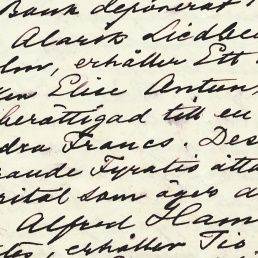 Bank deponerat
Alarik Liedbe
lm, erhåller Ett
ken Elise Antun
berättigad till en
dra Francs. Des
raude Gratis åtta
pital som äger d
Alfred Ham
tes, erhåller Tio